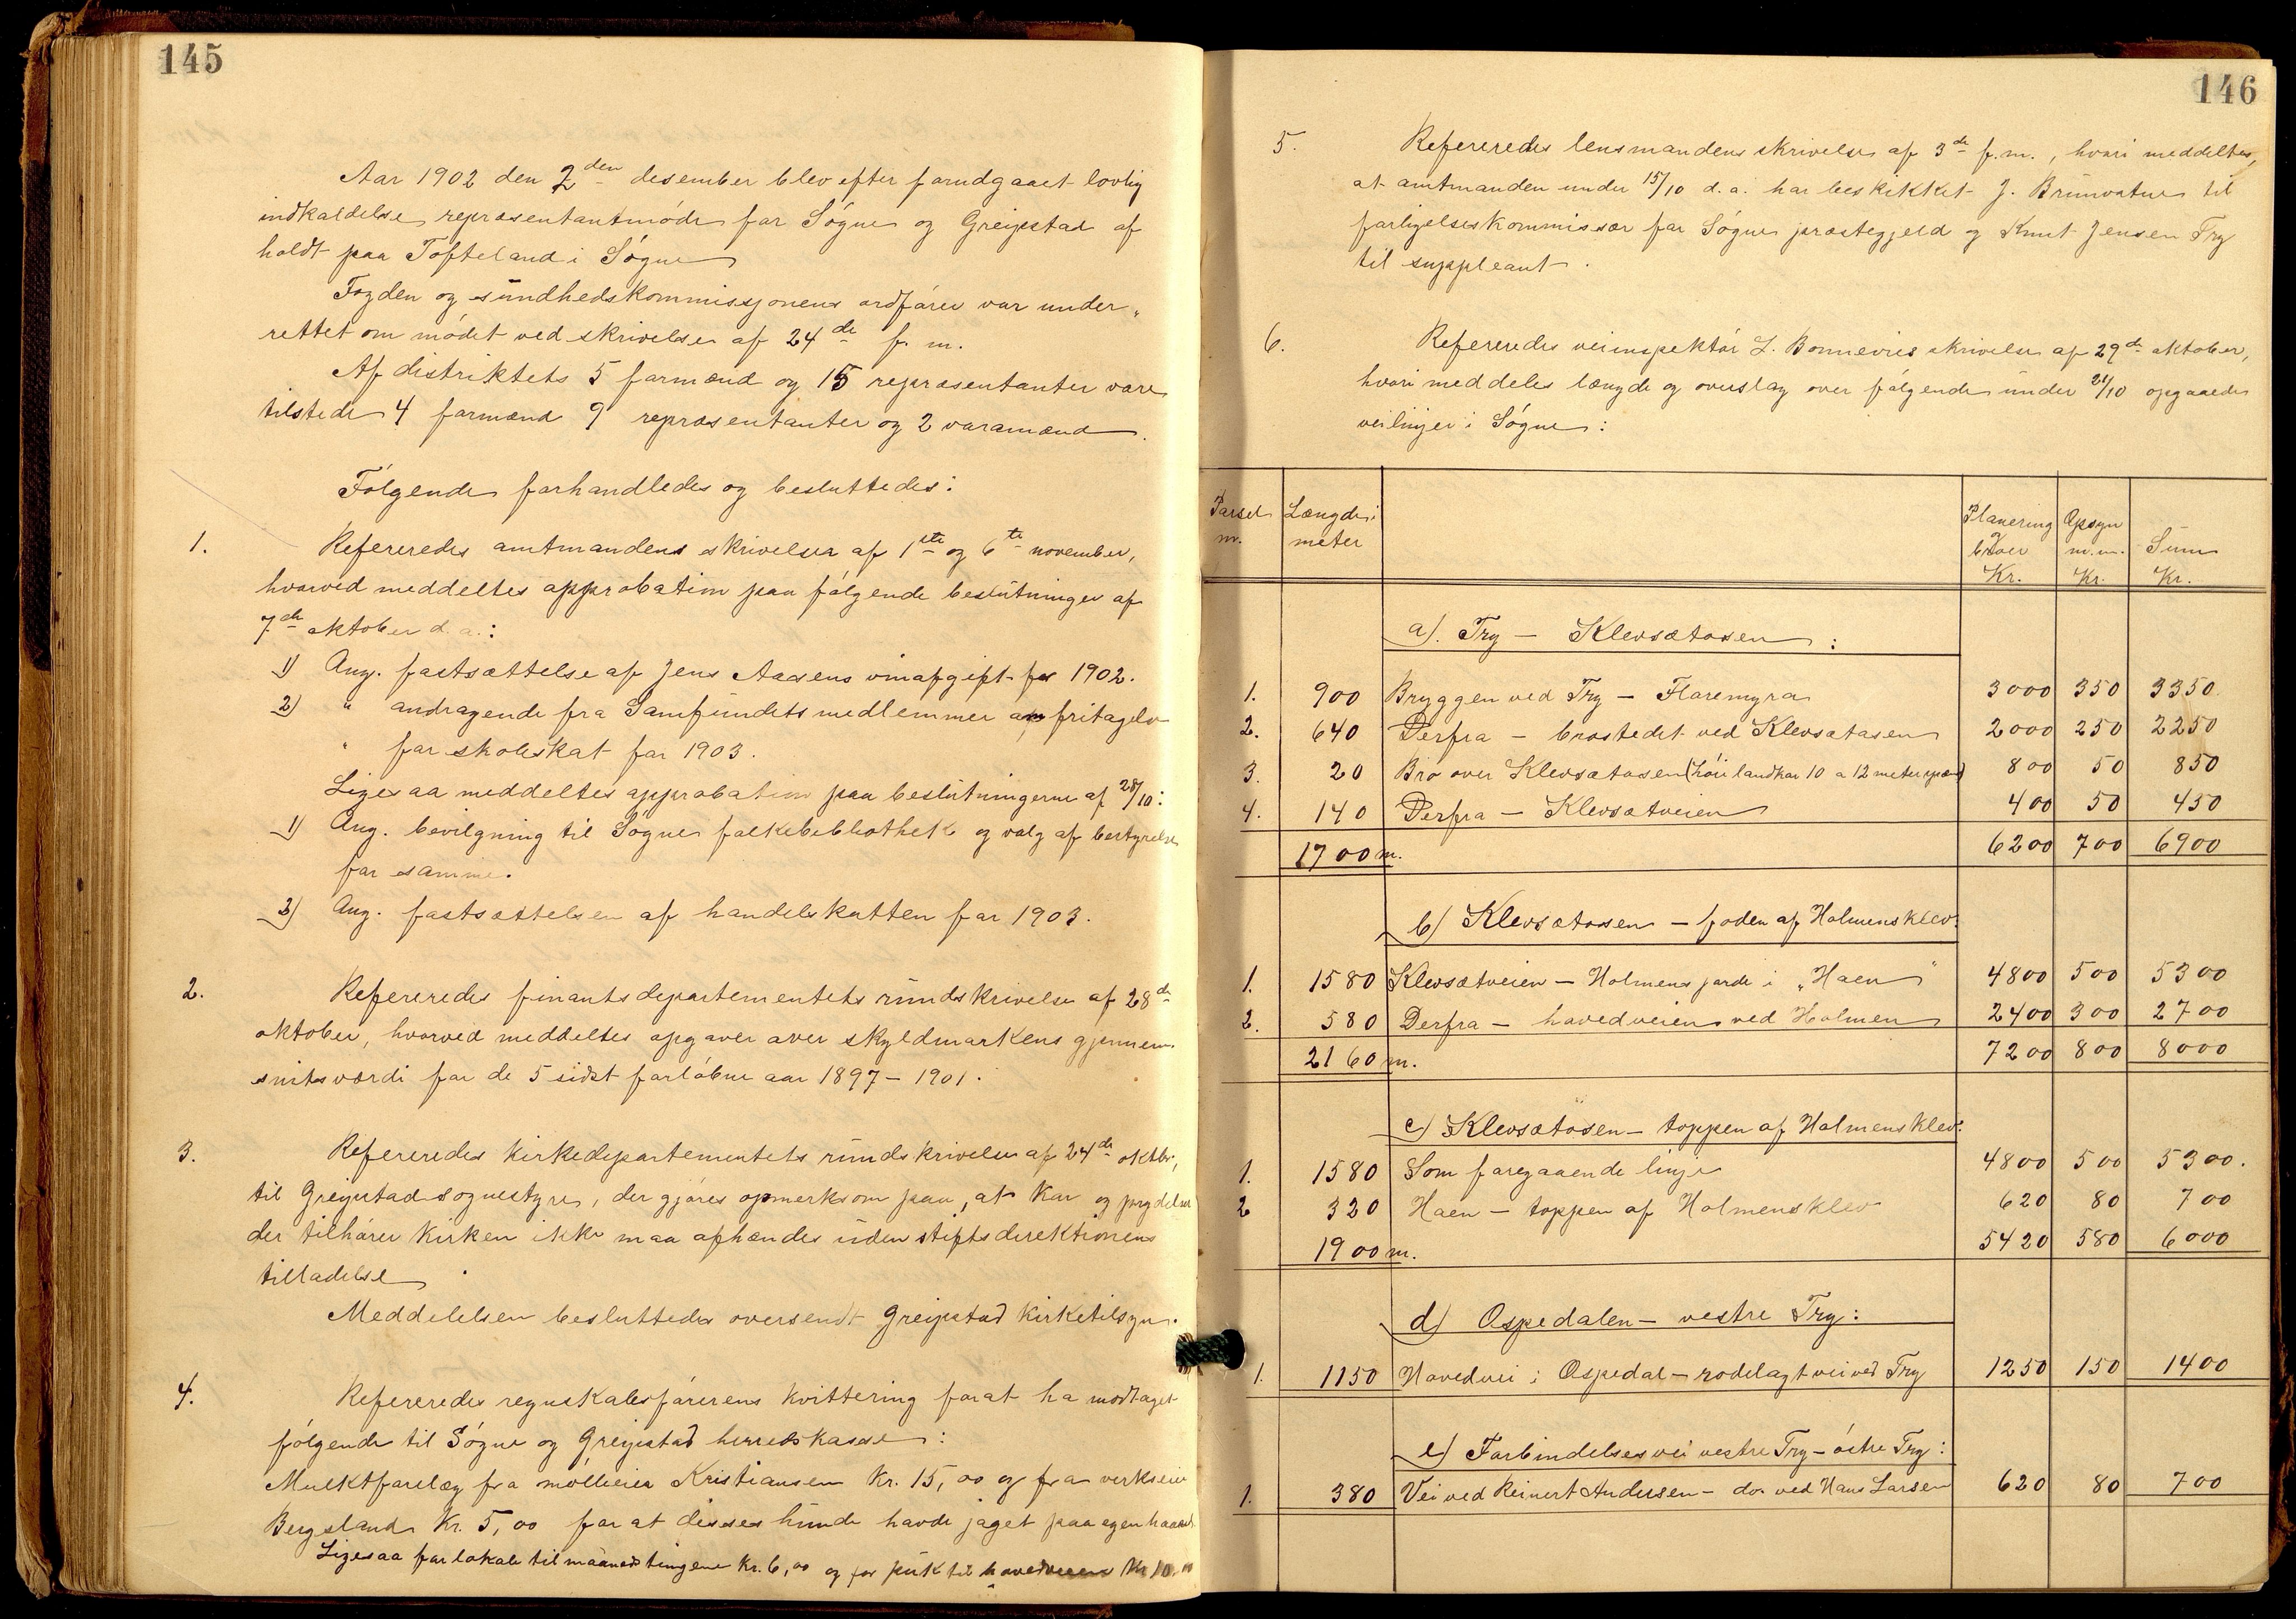 145
Aar 1902 den 2den desember blev efter forudgaaet lovlig
indkaldelse repræsentantmøde for Søgne og Greipstad af
holdt paa Tofteland i Søgne
Fogden og sundhedskommissjonens ordfører var under„
rettet om mødet ved skrivelse af 24de f. m.
Af distriktets 5 formænd og 15 repræsentanter vare
tilstede 4 formænd 9 repræsentanter og 2 varamænd.
Følgende forhandledes og besluttedes:
1. Refereredes amtmandens skrivelser af 1ste og 6te november,
hvorved meddeltes approbation paa følgende beslutninger af
7de oktober d. a.:
1) Ang. fastsættelse af Jens Aasens vinafgift for 1902.
2) " andragende fra Samfundets medlemmer om fritagelse
" for skoleskat for 1903.
Ligesaa meddeltes approbation paa beslutningerne af 28/10:
1) Ang. bevilgning til Søgne folkebibliothek og valg af bestyrelse
for samme.
2) Ang. fastsættelsen af handelskatten for 1903.
2. Refereredes finantsdepartementets rundskrivelse af 28de
oktober, hvorved meddeltes opgaver over skyldmarkens gjennem
snitsværdi for de 5 sidst forløbne aar 1897 - 1901.
3. Refereredes kirkedepartementets rundskrivelse af 24de oktbr,
til Greipstad sognestyre, der gjøres opmerksom paa, at kar og prydelser
der tilhører kirken ikke maa afhændes uden stiftsdirektionens
tilladelse.
Meddelelsen besluttedes oversendt Greipstad kirketilsyn.
4. Refereredes regnskabsførerens kvittering for at ha modtaget
følgende til Søgne og Greipstad herredskasse:
Mulktforelæg fra mølleier Kristiansen Kr. 15,00 og fra verkseier
Bergeland Kr. 5,00 for at disses hunde havde jaget paa egen haand.
Ligesaa for lokale til maanedstingene Kr. 6,00 og for puk til hovedveien Kr 10,00
146
5. Refereredes lensmandens skrivelse af 3de f.m., hvori meddeltes,
at amtmanden under 15/10 d.a. har beskikket J. Brunvatne til
forligelseskommissær for Søgne præstegjeld og Knut Jensen Try
til suppleant.
6. Refereredes veiinspektør L. Bonnevies skrivelse af 29de oktober,
hvori meddeles længde og overslag over følgende under 21/10 opgaaede
veilinjer i Søgne:
Parsel nr. Længde i meter Planering og broer Kr. Opsyn m.m. Kr. Sum Kr.
a). Try — Klevsætosen:
1. 900 Bryggen ved Try — Flaremyra 3000 350 3350
2. 640 Derfra — brostedet ved Klevsætosen 2000 250 2250
3. 20 Bro over Klevsætosen (høie landkar 10 a 12 meter spænd) 800 50 850
4. 140 Derfra — Klevsætveien 400 50 450
1700 m. 6200 700 6900
b) Klevsætosen — foden af Holmensklev.
1. 1580 Klevsætveien — Holmens jorde i „Haen" 4800 500 5300
2. 580 Derfra — hovedveien ved Holmen 2400 300 2700
2160 m. 7200 800 8000
c) Klevsætosen — toppen af Holmensklev.
1. 1580 Som foregaaende linje 4800 500 5300.
2 320 Haen — toppen af Holmensklev 620 80 700
1900 m. 5420 580 6000
d) Ospedalen — vestre Try:
1. 1150 Hovedvei i Ospedal — rodelagt vei ved Try 1250 150 1400
e) Forbindelsesvei vestre Try — østre Try:
1. 380 Vei ved Reinert Andersen — do. ved Hans Larsen 620 80 700